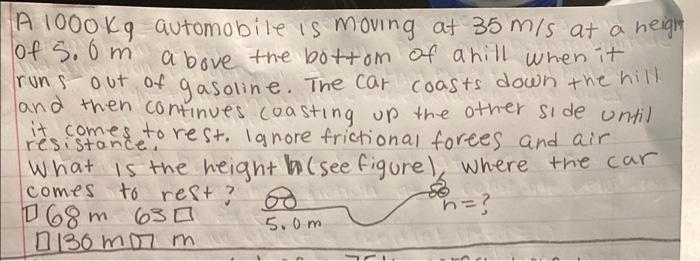 A 1000 Kg automobile is moving at 35 m/s at a heigh
of 5.0 m above the bottom of a hill when it
runs out of gasoline. The car coasts down the hill
and then continues coasting up the other side until
it comes to rest. Ignore frictional forces and air
resistance.
What is the height h (see figure), where the car
comes to rest?
h=?
68 m 63
5.0m
130 m m